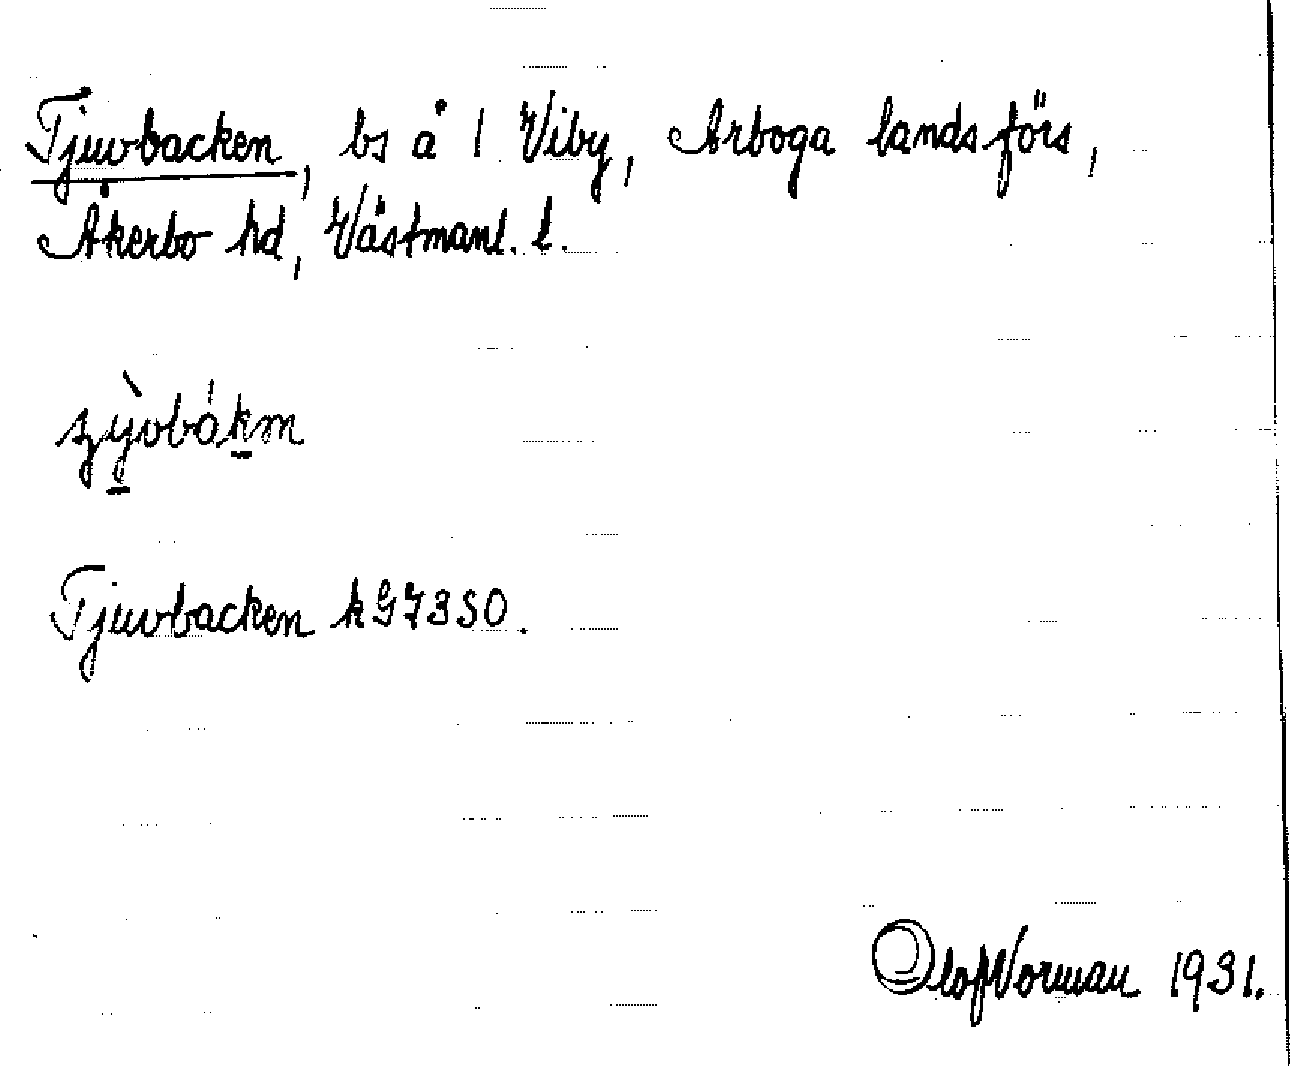 Tjuvbacken, bs å 1 Viby, Arboga landsförs,
Åkerbo hd, Västmanl. l.
Tjuvbacken kG7350.
Olof Norman 1931.